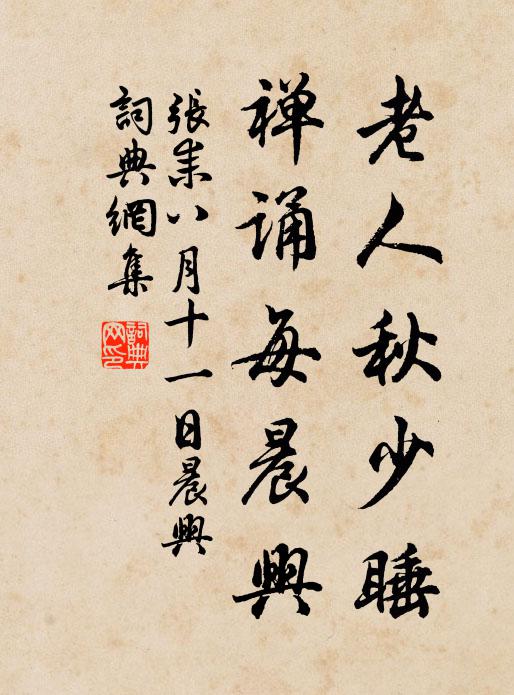 老人秋少睡
禅诵每晨興
張耒八月十一日晨興
詞典網集
詞典网印